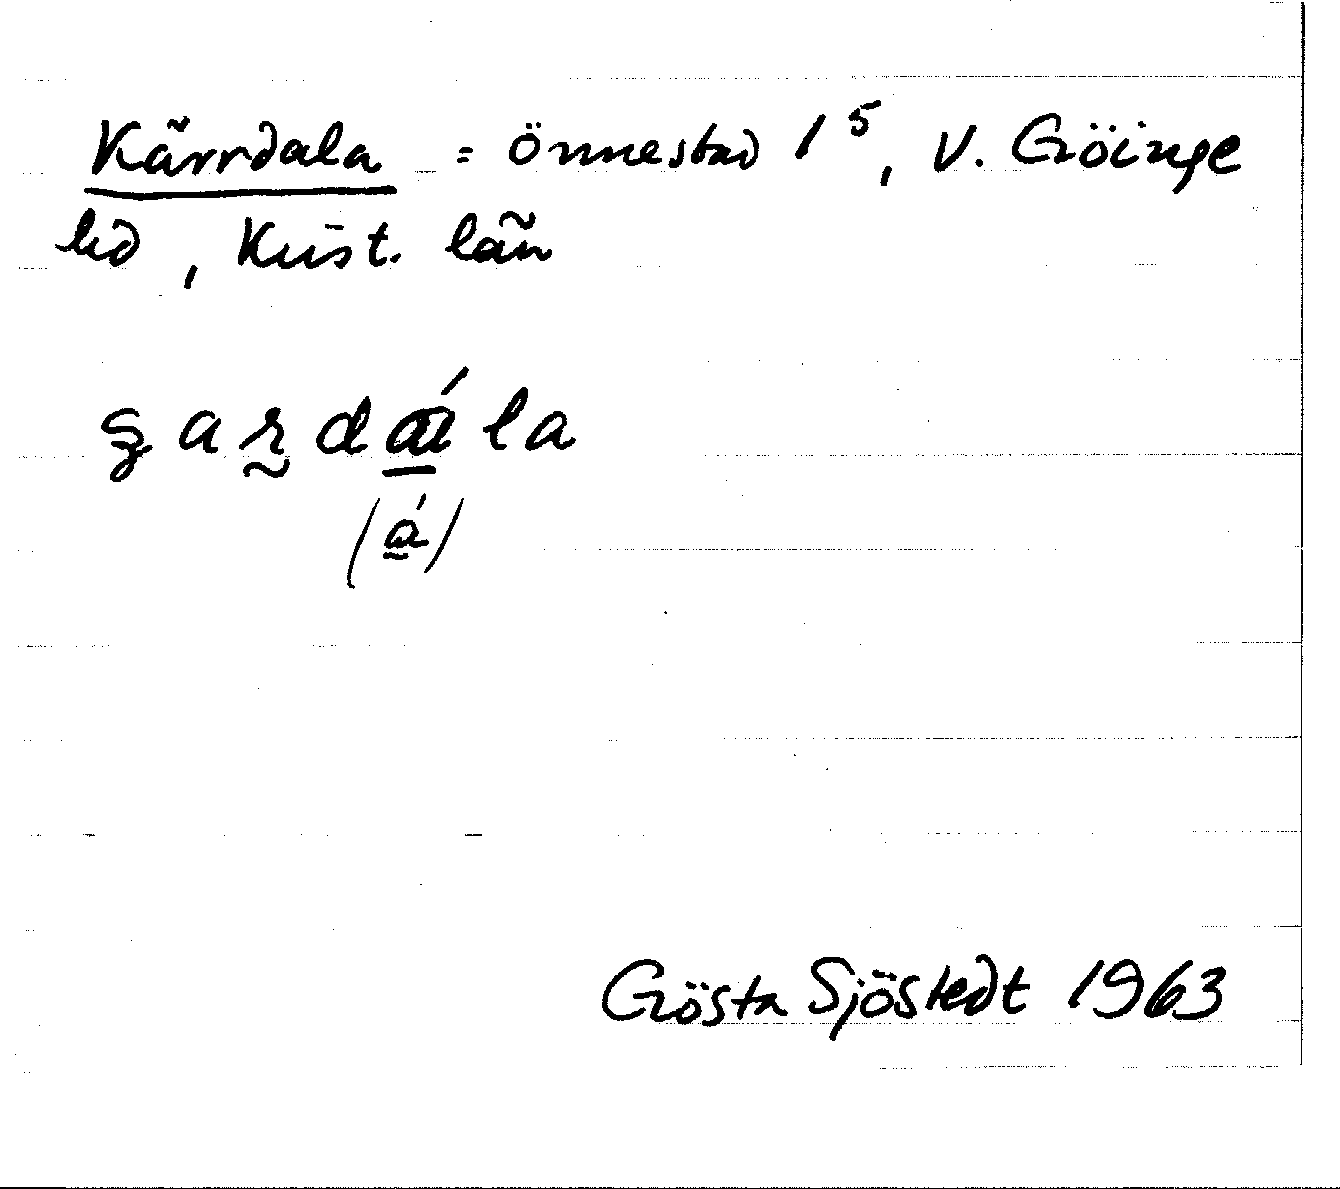 Kärrdala = Önnestad 1⁵, V. Göinge
hd, Krist. län
Gösta Sjöstedt 1963